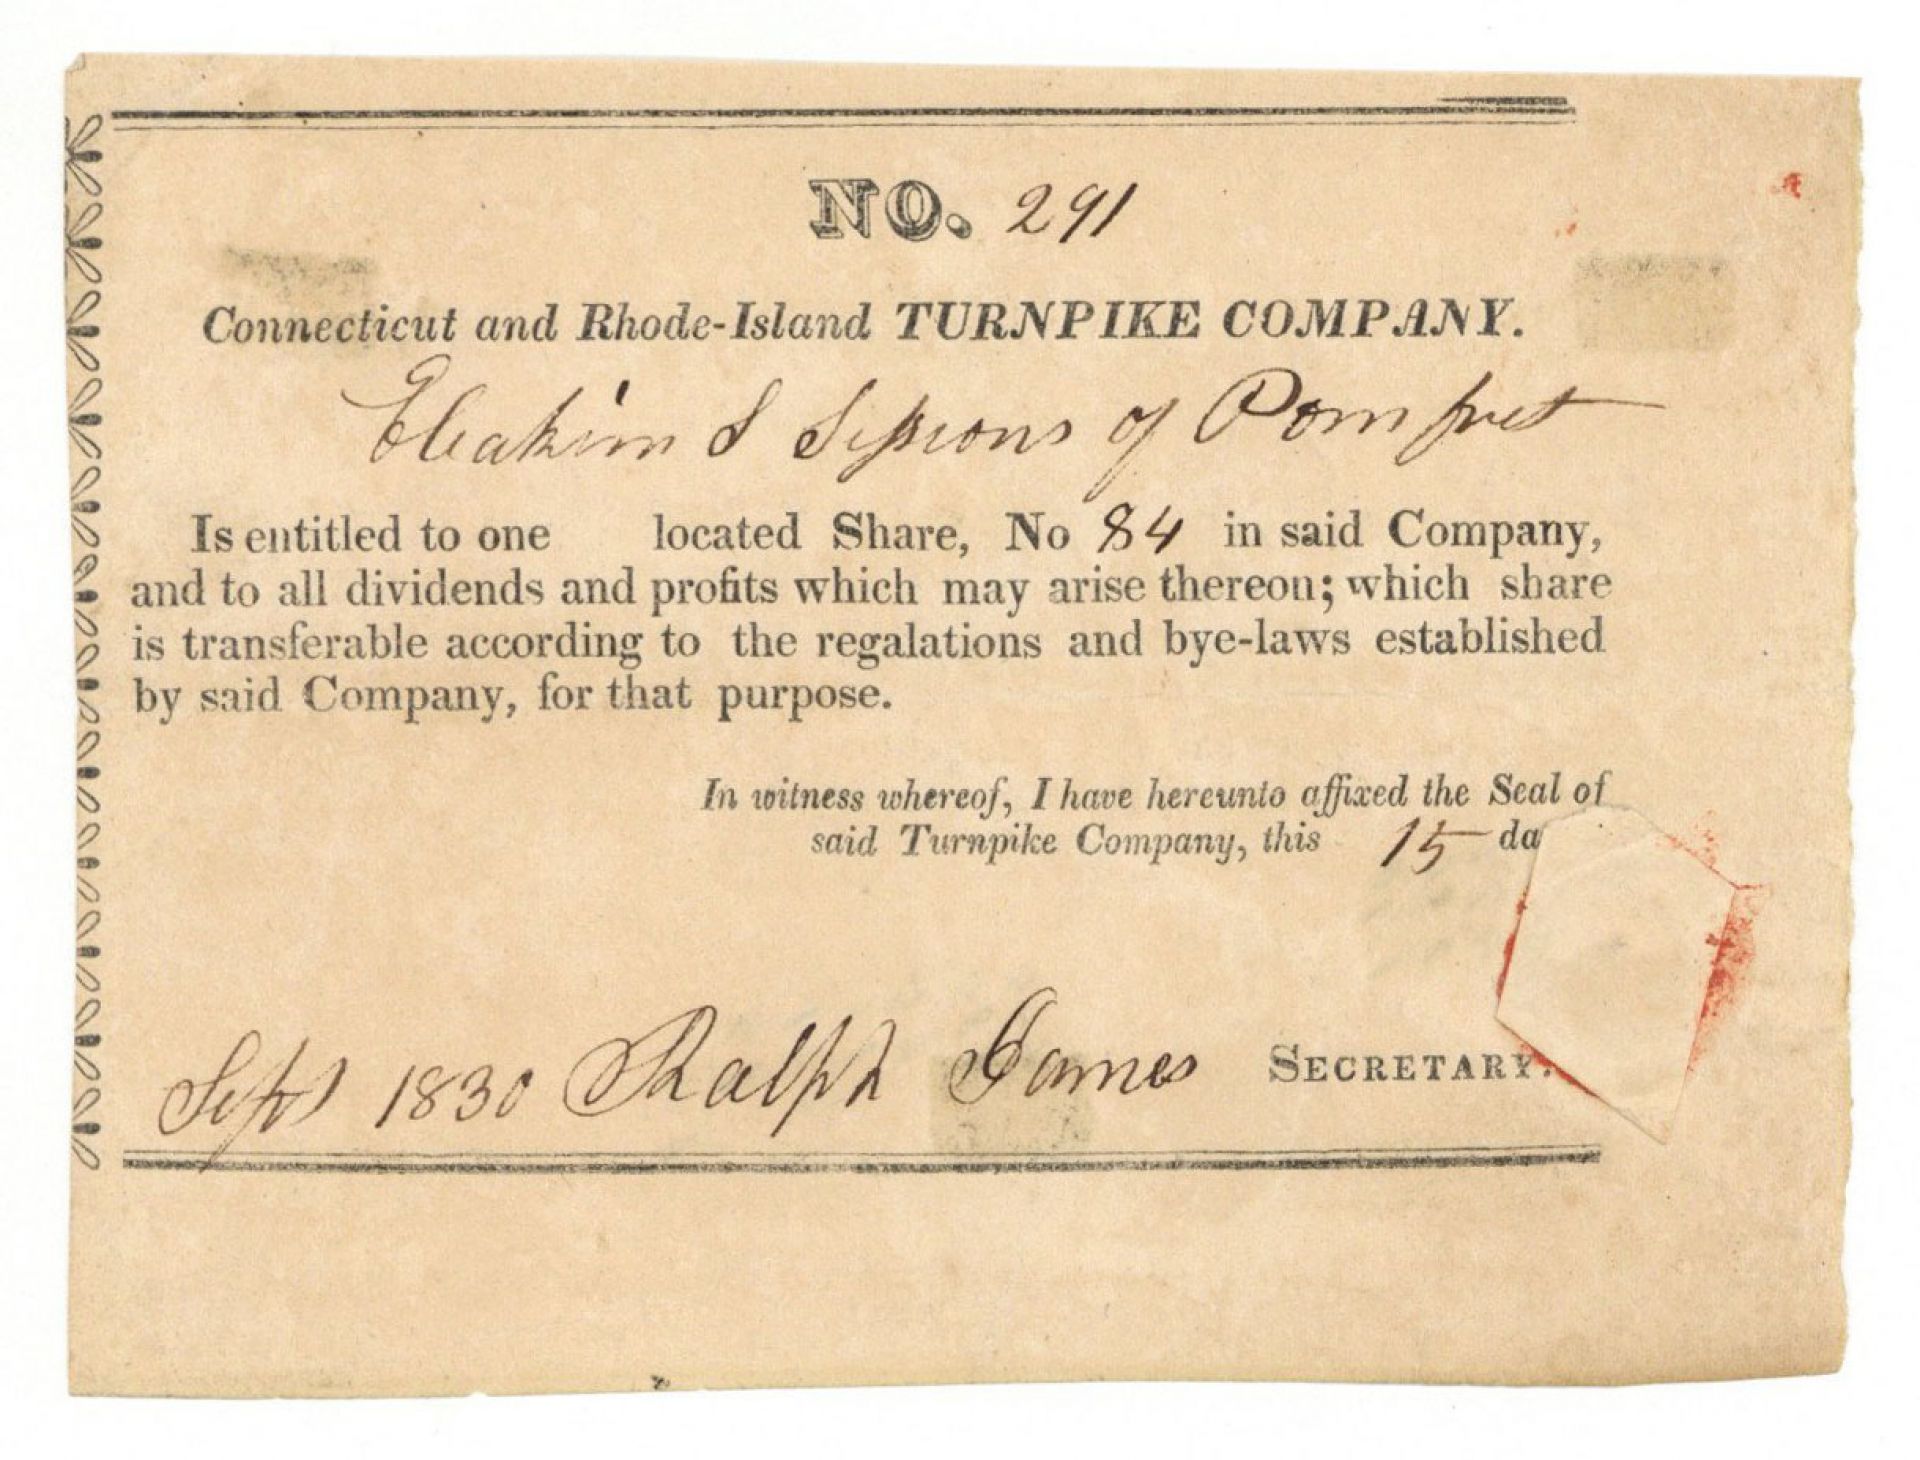 NO. 291
Connecticut and Rhode-Island TURNPIKE COMPANY.
Eleakim S Sessions of Pomfret
Is entitled to one located Share, No 84 in said Company,
and to all dividends and profits which may arise thereon; which share
is transferable according to the regalations and bye-laws established
by said Company, for that purpose.
In witness whereof, I have hereunto affixed the Seal of
said Turnpike Company, this 15 da
Sept 1830 Ralph James SECRETARY.